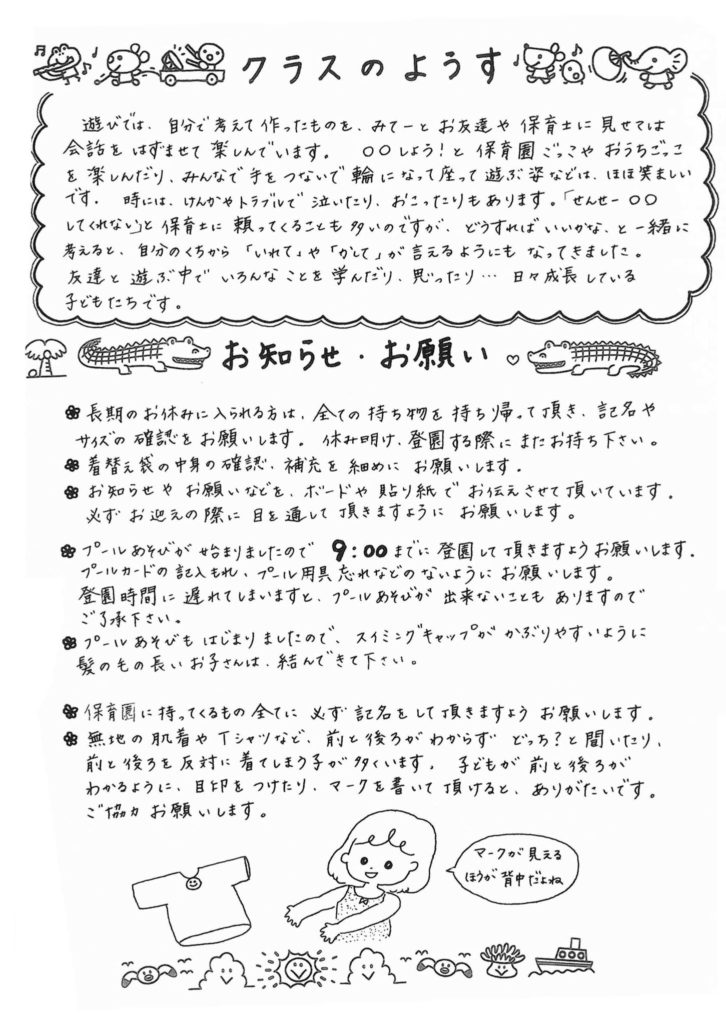 クラスのようす
遊びでは、自分で考えて作ったものを、みてーとお友達や保育士に見せては
会話をはずませて楽しんでいます。 〇〇しよう!と保育園ごっこやおうちごっこ
を楽しんだり、みんなで手をつないで輪になって座って遊ぶ姿などは、ほほ笑ましい
です。 時には、けんかやトラブルで泣いたり、おこったりもあります。「せんせー〇〇
してくれない」と保育士に頼ってくることも多いのですが、どうすればいいかな、と一緒に
考えると、自分のくちから「いれて」や「かして」が言えるようにもなってきました。
友達と遊ぶ中でいろんなことを学んだり、思ったり…日々成長している
子どもたちです。
お知らせ・お願い♡
長期のお休みに入られる方は、全ての持ち物を持ち帰って頂き、記名や
サイズの確認をお願いします。休み明け、登園する際にまたお持ち下さい。
着替え袋の中身の確認、補充を細めにお願いします。
お知らせやお願いなどを、ボードや貼り紙でお伝えさせて頂いています。
必ずお迎えの際に目を通して頂きますようにお願いします。
プールあそびが始まりましたので 9:00までに登園して頂きますようお願いします.
プールカードの記入もれ、プール用具忘れなどのないようにお願いします。
登園時間に遅れてしまいますと、プールあそびが出来ないこともありますので
ご了承下さい。
プールあそびもはじまりましたので、スイミングキャップがかぶりやすいように
髪の毛の長いお子さんは、結んできて下さい。
保育園に持ってくるもの全てに必ず記名をして頂きますようお願いします。
無地の肌着やTシャツなど、前と後ろがわからずどっち?と聞いたり、
前と後ろを反対に着てしまう子が多くいます。子どもが前と後ろが
わかるように、目印をつけたり、マークを書いて頂けると、ありがたいです。
ご協力お願いします。
マークが見える
ほうが背中だよね